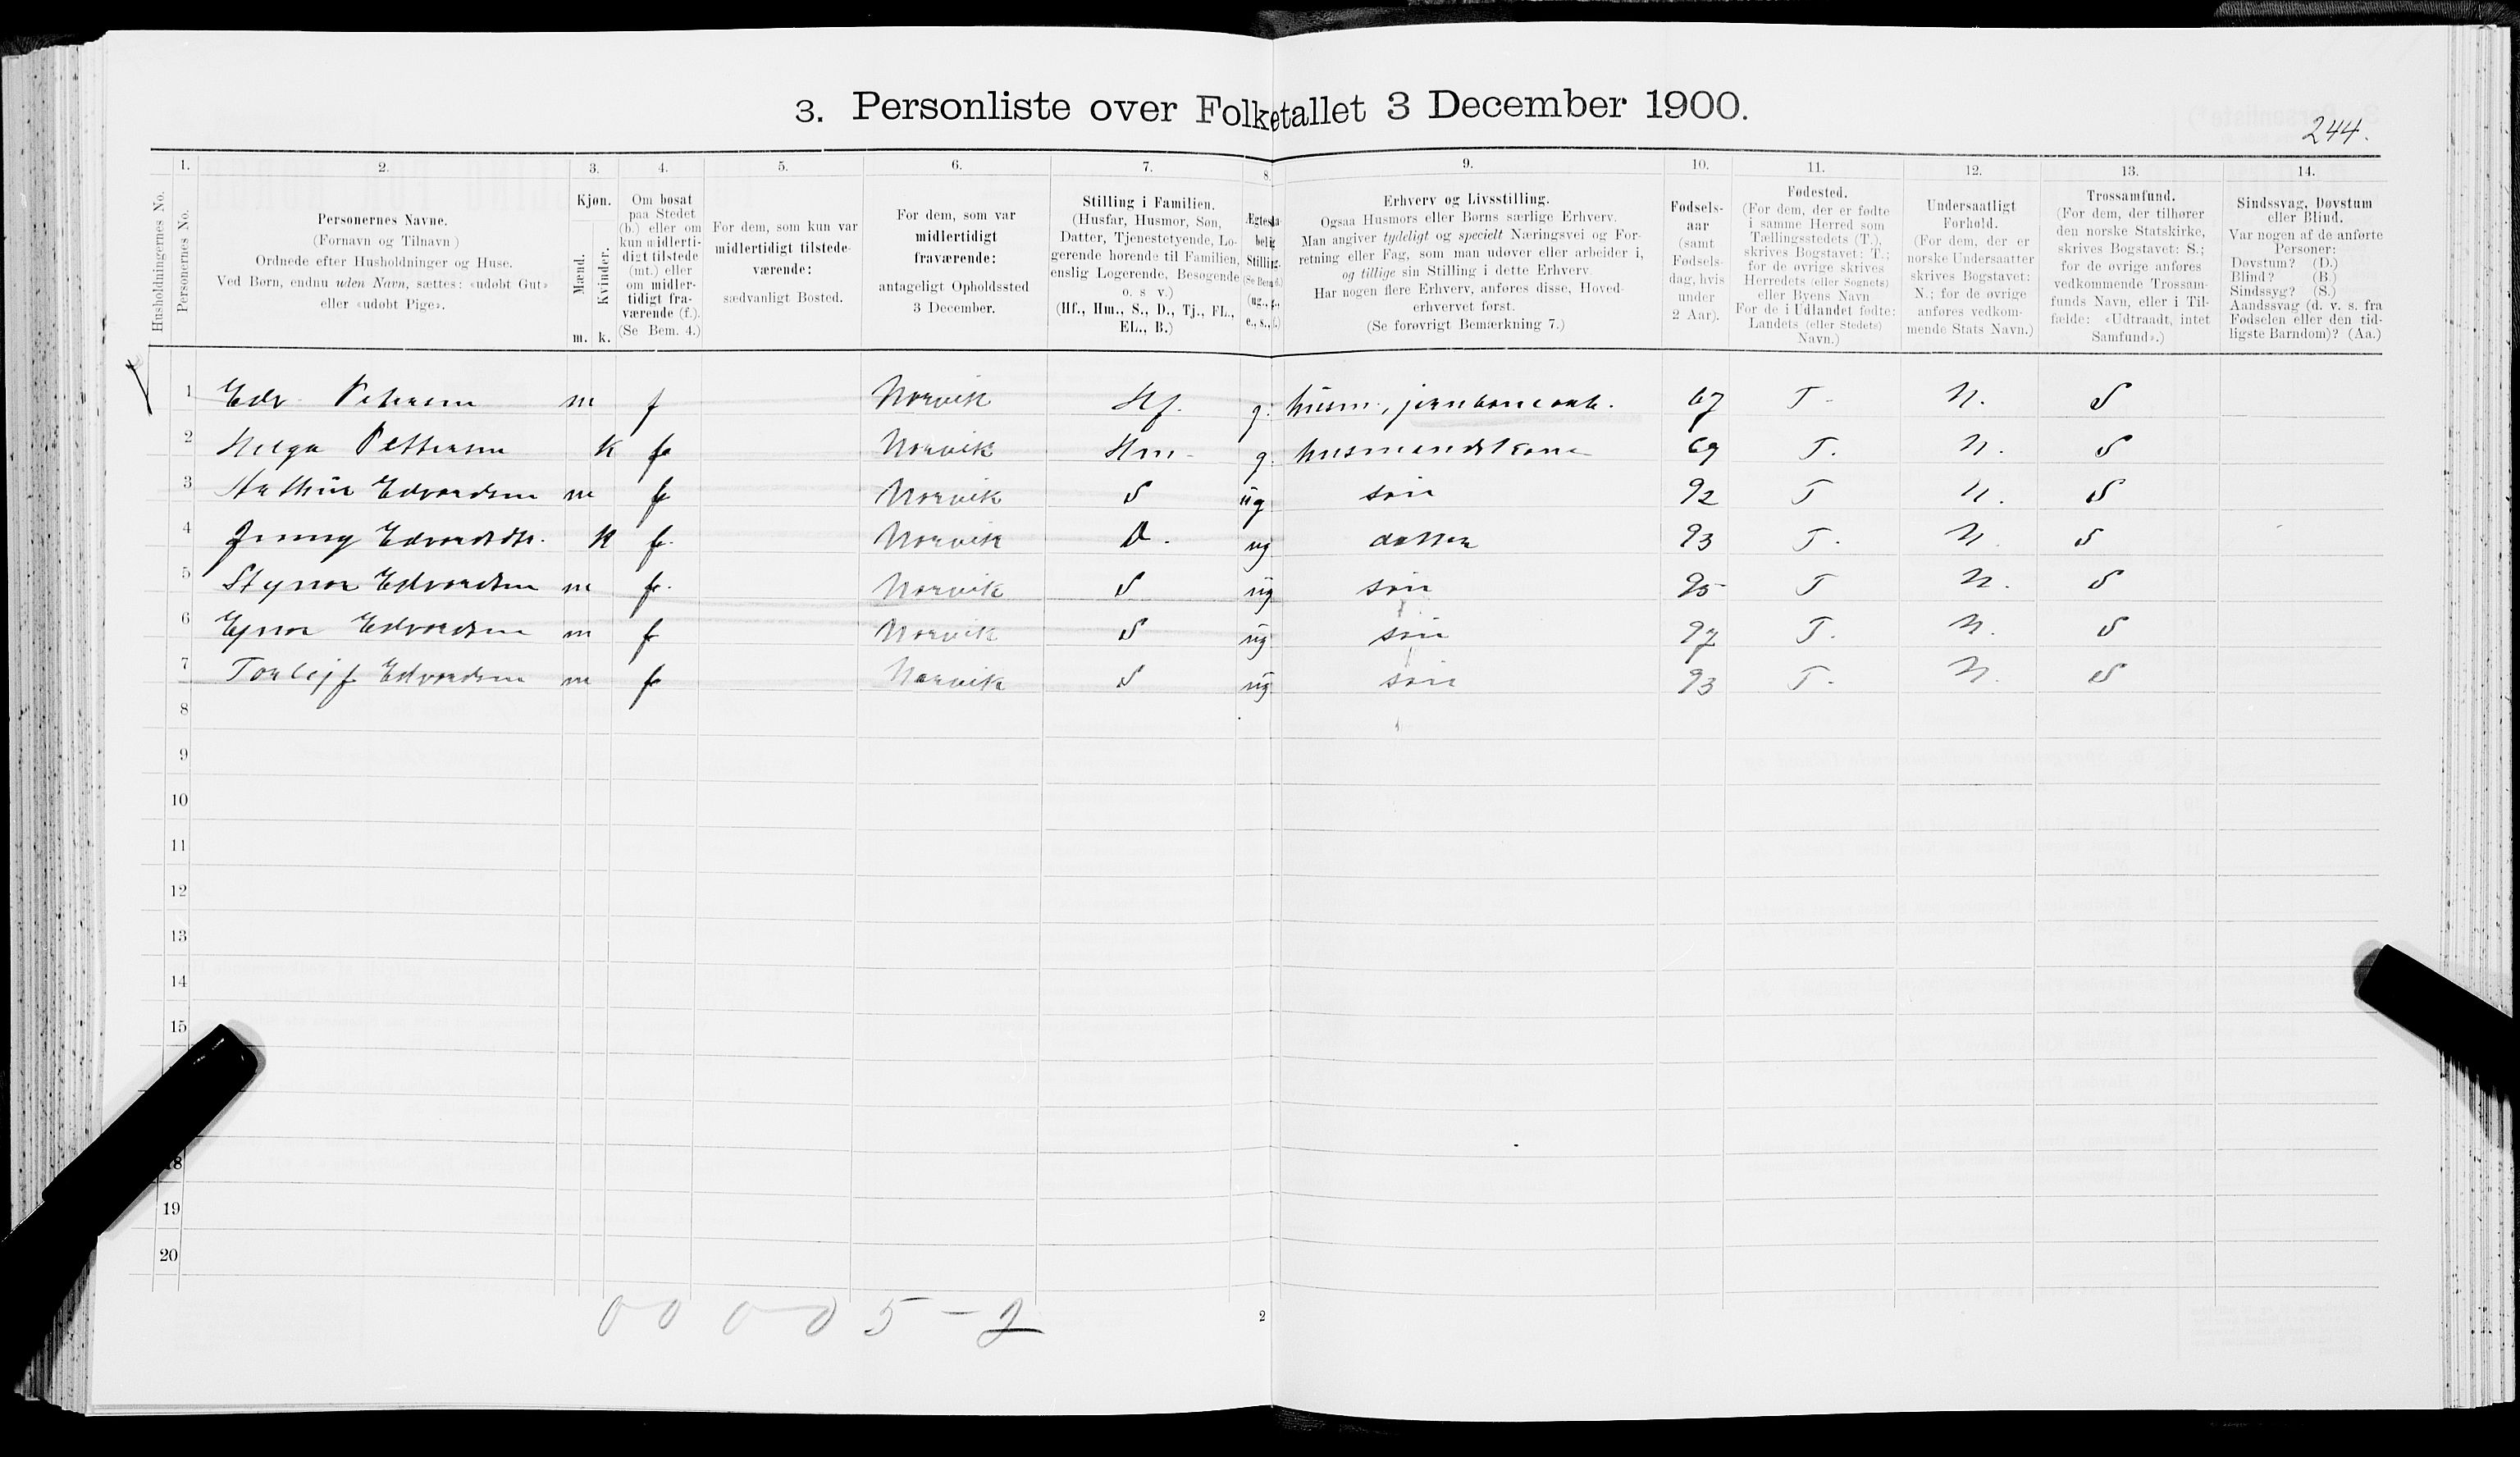 3. Personliste over Folketallet 3 December 1900.
244.
1. 2. 3. 4. 5. 6. 7. 8. 9. 10. 11. 12. 13. 14.
Husholdningernes No.
Personernes No.
Personernes Navne.
(Fornavn og Tilnavn)
Ordnede efter Husholdninger og Huse.
Ved Børn, endnu uden Navn, sættes: «udøbt Gut»
eller «udøbt Pige».
Kjøn.
Mænd.
Kvinder.
m. k.
Om bosat
paa Stedet
(b.) eller om
kun midlerti-
digt tilstede
(mt.) eller
om midler-
tidigt fra-
værende (f.).
(Se Bem. 4.)
For dem, som kun var
midlertidigt tilstede-
værende:
sædvanligt Bosted.
For dem, som var
midlertidigt
fraværende:
antageligt Opholdssted
3 December.
Stilling i Familien.
(Husfar, Husmor, Søn,
Datter, Tjenestetyende, Lo-
gerende hørende til Familien,
enslig Logerende, Besøgende
o. s v.)
(Hf., Hm., S., D., Tj., FL.,
EL., B.)
Ægteska-
belig
Stilling.
(Se Bem 6.)
(ug., g.,
e., s., f.)
Erhverv og Livsstilling.
Ogsaa Husmors eller Børns særlige Erhverv.
Man angiver tydeligt og specielt Næringsvei og For-
retning eller Fag, som man udøver eller arbeider i,
og tillige sin Stilling i dette Erhverv.
Har nogen flere Erhverv, anføres disse, Hoved-
erhvervet først.
(Se forøvrigt Bemærkning 7.)
Fødsels-
aar
(samt
Fødsels-
dag, hvis
under
2 Aar).
Fødested.
(For dem, der er fødte
i samme Herred som
Tællingsstedets (T.),
skrives Bogstavet: T.;
for de øvrige skrives
Herredets (eller Sognets)
eller Byens Navn
For de i Udlandet fødte:
Landets (eller Stedets)
Navn.)
Undersaatligt
Forhold.
(For dem, der er
norske Undersaatter
skrives Bogstavet:
N.; for de øvrige
anføres vedkom-
mende Stats Navn.)
Trossamfund.
(For dem, der tilhører
den norske Statskirke,
skrives Bogstavet: S.;
for de øvrige anføres
vedkommende Trossam-
funds Navn, eller i Til-
fælde: «Udtraadt, intet
Samfund».)
Sindssvag, Døvstum
eller Blind.
Var nogen af de anførte
Personer:
Døvstum? (D.)
Blind? (B.)
Sindssyg? (S.)
Aandssvag (d. v. s. fra
Fødselen eller den tid-
ligste Barndom)? (Aa.)
1 Edv. Petersen m f Norvik Hf. g. husm., jernbanearb. 67 T. N. S
2 Helga Pettersen k f Norvik Hm. g. husmandskone 69 T. N. S
3 Arthur Edvardsen m f Norvik S ug søn 92 T N. S
4 Jenny Edvardsdtr. k f. Norvik D. ug datter 93 T. N. S
5 Edvardsen m f. Norvik S ug søn 95 T N. S
6 Ejnar Edvardsen m f Norvik S ug søn 97 T. N. S
7 Torlejf Edvardsen m f Norvik S ug søn 93 T. N. S
8
9
10
11
12
13
14
15
18
19
20
0 0 0 - 0 5 - 2
2